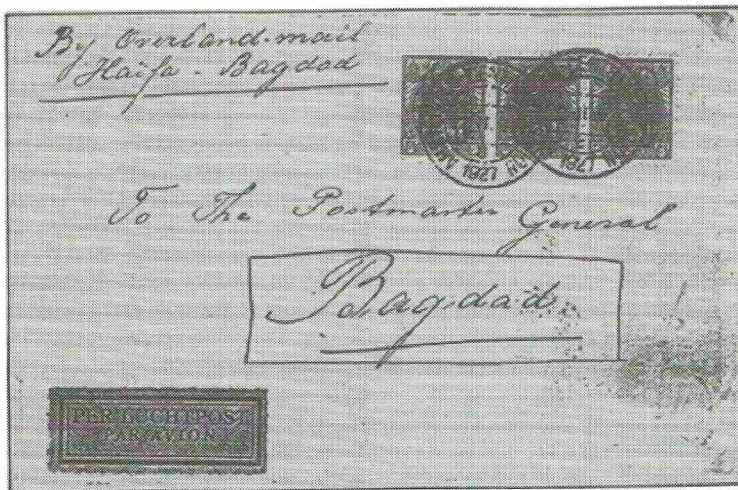 By Overland-mail
Haïfa - Bagdad
To The Postmaster General
Bagdad
PER LUCHTPOST
PAR AVION